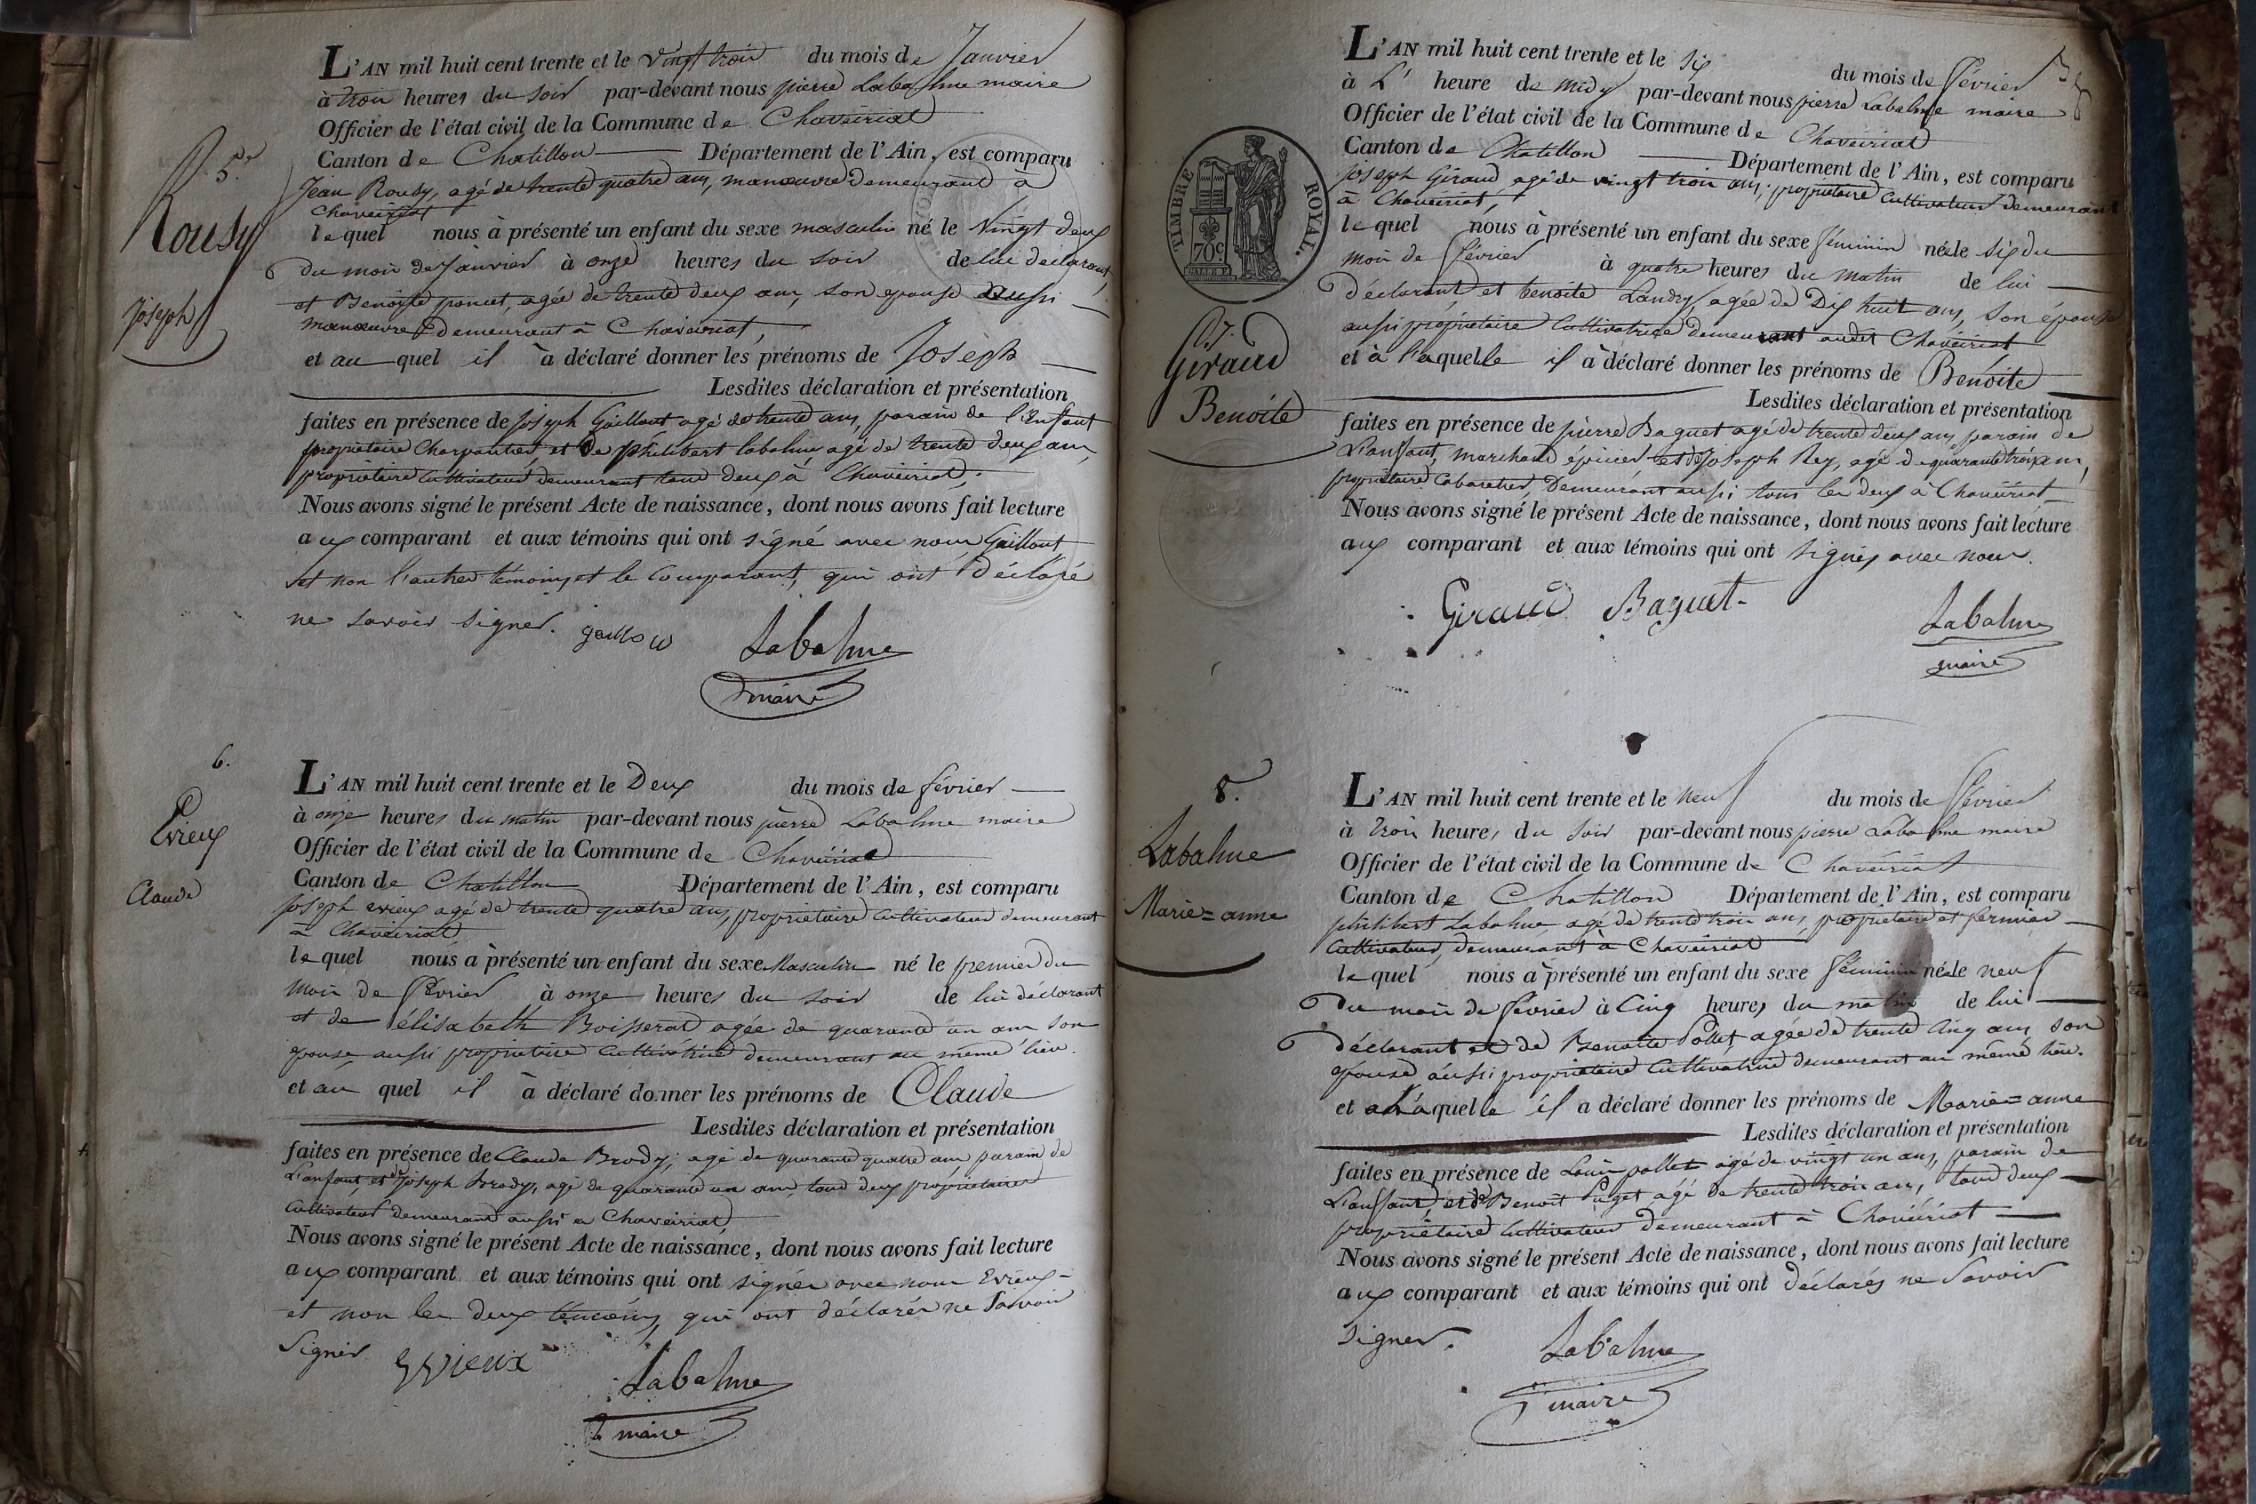 5.e
Rousy
Joseph
L'AN mil huit cent trente et le vingt trois du mois de Janvier
à trois heures du soir par-devant nous pierre Labalme maire
Officier de l'état civil de la Commune de Chaveiriat
Canton de Chatillon Département de l'Ain, est comparu
Jean Rousy, agé de trente quatre ans, manœuvre demeurant à
Chaveiriat
lequel nous à présenté un enfant du sexe masculin né le Vingt deux
du mois de Janvier à onze heures du soir de lui déclarant,
et Benoite poncet, agée de trente deux ans, son epouse aussi
manœuvre demeurant à Chaveiriat,
et au quel il à déclaré donner les prénoms de Joseph
Lesdites déclaration et présentation
faites en présence de Joseph Gaillout agé de trente ans, parain de l'enfant
propriétaire Charpentier, et de philibert labalme agé de trente deux ans,
propriétaire Cultivateur demeurant tous deux à Chaveiriat,
Nous avons signé le présent Acte de naissance, dont nous avons fait lecture
aux comparant et aux témoins qui ont signé avec nous Gaillout
et non l'autre témoins, et le Comparant, qui ont déclaré
ne savoir signer. gaillou Labalme
maire
6.
Evieux
Claude
L'AN mil huit cent trente et le Deux du mois de février
à onze heures du matin par-devant nous pierre Labalme maire
Officier de l'état civil de la Commune de Chaveiriat
Canton de Chatillon Département de l'Ain, est comparu
Joseph evieux agé de trente quatre ans, propriétaire Cultivateur demeurant
à Chaveiriat
lequel nous à présenté un enfant du sexe Masculin né le premier du
mois de février à onze heures du soir de lui déclarant
et de élisabeth Boisserat agée de quarante un ans son
epouse, aussi propriétaire Cultivatrice demeurant au même lieu.
et au quel il à déclaré donner les prénoms de Claude
Lesdites déclaration et présentation
faites en présence de Claude Brody, agé de quarante quatre ans parain de
L'anfant, et de Joseph Brody, agé de quarante un ans, tous deux propriétaires
Cultivateur demeurant aussi a Chaveiriat,
Nous avons signé le présent Acte de naissance, dont nous avons fait lecture
aux comparant et aux témoins qui ont signés avec nous Evieux
et non les deux témoins, qui ont déclarés ne Savoir
Signer evieux Labalme
maire
TIMBRE ROYAL.
70c
7.
Giraud
Benoite
L'AN mil huit cent trente et le six du mois de février
à L' heure de midy par-devant nous pierre Labalme maire
Officier de l'état civil de la Commune de Chaveiriat
Canton de Chatillon Département de l'Ain, est comparu
Joseph Giraud agé de vingt trois ans, propriétaire Cultivateur demeurant
à Chaveiriat,
lequel nous à présenté un enfant du sexe féminin née le six du
mois de février à quatre heures du matin de lui
déclarant et benoite Landry agée de Dix huit ans, son épouse
aussi propriétaire Cultivatrice demeurant audit Chaveiriat
et à laquelle il à déclaré donner les prénoms de Benoite
Lesdites déclaration et présentation
faites en présence de pierre Baguet agé de trente deux ans, parain de
L'anfant, marchand épicier et de Joseph Rey, agé de quarante trois ans,
propriétaire Cabaretier, Demeurant aussi tous les deux à Chaveiriat
Nous avons signé le présent Acte de naissance, dont nous avons fait lecture
aux comparant et aux témoins qui ont signés avec nous.
Giraud Baguet Labalme
maire
8.
Labalme
Marie=anne
L'AN mil huit cent trente et le neuf du mois de février
à trois heures du soir par-devant nous pierre Labalme maire
Officier de l'état civil de la Commune de Chaveiriat
Canton de Chatillon Département de l'Ain, est comparu
philibert Labalme agé de trente trois ans, propriétaire et fermier
Cultivateur, demeurant à Chaveiriat
lequel nous à présenté un enfant du sexe féminin née le neuf
du mois de février à Cinq heures du matin de lui
déclarant et de Benoite Pollet, agée de trente Cinq ans, son
epouse aussi propriétaire Cultivatrice demeurant au même lieu.
et a laquelle il a déclaré donner les prénoms de Marie=anne
Lesdites déclaration et présentation
faites en présence de Louis pollet agé de vingt un ans, parain de
L'anfant, et de Benoit Puget agé de trente trois ans, tous deux
propriétaire Cultivateur demeurant à Chaveiriat
Nous avons signé le présent Acte de naissance, dont nous avons fait lecture
aux comparant et aux témoins qui ont déclarés ne Savoir
signer. Labalme
maire